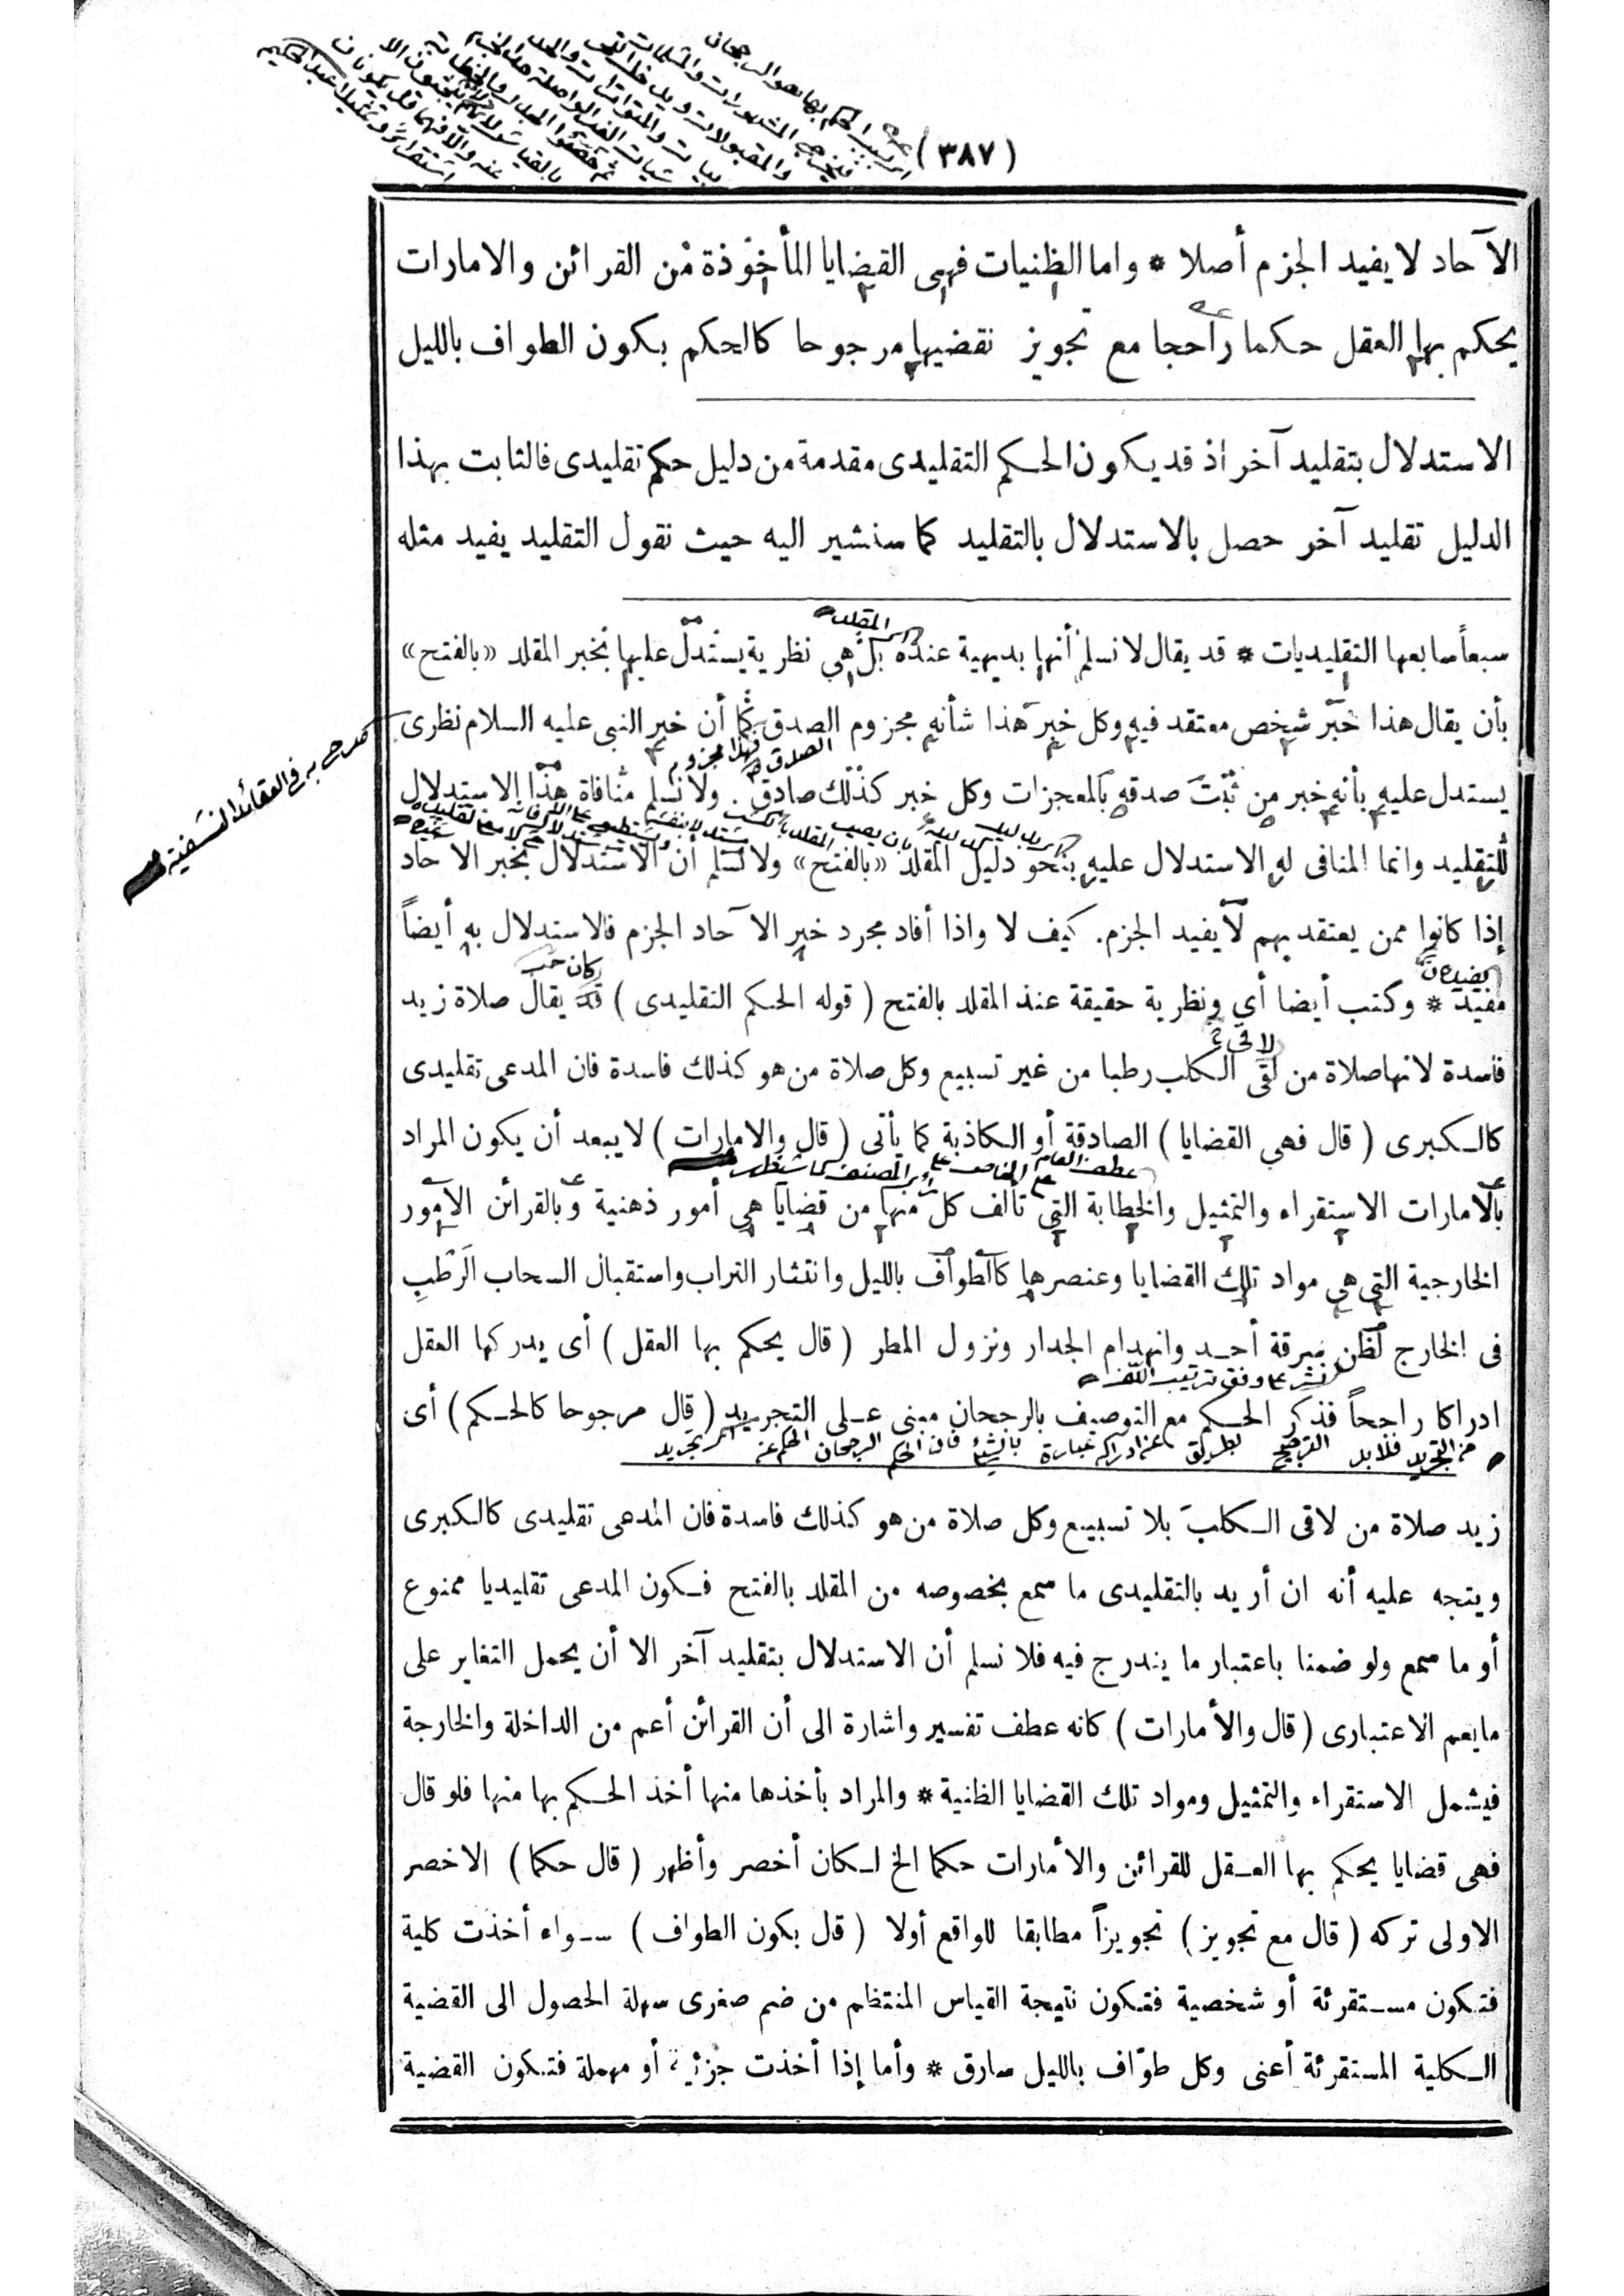 (٣٨٧)
الآحاد لا يفيد الجزم أصلا * واما الظنيات فهى القضايا المأخوذة من القرائن والامارات
يحكم بها العقل حكما راجحا مع تجويز نقضيها مرجوحا كالحكم بكون الطواف بالليل
الاستدلال بتقليد آخر اذ قد يكون الحكم التقليدى مقدمة من دليل حكم تقليدى فالثابت بهذا
الدليل تقليد آخر حصل بالاستدلال بالتقليد كما سنشير اليه حيث نقول التقليد يفيد مثله
المقلد
سبعاً سابعها التقليديات * قد يقال لا نسلم أنها بديهية عنده بل هي نظرية يستدل عليها بخبر المقلد «بالفتح»
بأن يقال هذا خبر شخص معتقد فيه وكل خبر هذا شأنه مجزوم الصدق كما أن خبر النبى عليه السلام نظرى
فهذا مجزوم الصدق
يستدل عليه بأنه خبر من ثبت صدقه بالمعجزات وكل خبر كذلك صادق . ولا نسلم منافاة هذا الاستدلال
للتقليد وانما المنافى له الاستدلال عليه بنحو دليل المقلد «بالفتح» ولا نسلم أن الاستدلال بخبر الاحاد
إذا كانوا ممن يعتقد بهم لا يفيد الجزم. كيف لا واذا أفاد مجرد خبر الآحاد الجزم فالاستدلال به أيضاً
مفيد * وكتب أيضا أي ونظرية حقيقة عنذ المقلد بالفتح ( قوله الحكم التقليدى ) قد يقال صلاة زيد
فاسدة لانها صلاة من لقى الكلب رطبا من غير تسبيع وكل صلاة من هو كذلك فاسدة فان المدعى تقليدى
كالكبرى ( قال فهي القضايا ) الصادقة أو الكاذبة كما يأتى ( قال والامارات ) لا يبعد أن يكون المراد
بالامارات الاستقراء والتمثيل والخطابة التي تألف كل منها من قضايا هي أمور ذهنية وبالقرائن الأمور
الخارجية التي هي مواد تلك القضايا وعنصرها كالطواف بالليل وانتشار التراب واستقبال السحاب الرطب
فى الخارج لظن سرقة أحد وانهدام الجدار ونزول المطر ( قال يحكم بها العقل ) أى يدركها العقل
نشر على وفق ترتيب اللف
ادراكا راجحاً فذكر الحكم مع التوصيف بالرجحان مبنى على التجريد ( قال مرجوحا كالحكم ) أى
زيد صلاة من لاقى الكلب بلا تسبيع وكل صلاة من هو كذلك فاسدة فان المدعى تقليدى كالكبرى
ويتجه عليه أنه ان أريد بالتقليدى ما سمع بخصوصه من المقلد بالفتح فكون المدعى تقليديا ممنوع
أو ما سمع ولو ضمنا باعتبار ما يندرج فيه فلا نسلم أن الاستدلال بتقليد آخر الا أن يحمل التغاير على
مايعم الاعتبارى ( قال والأمارات ) كانه عطف تفسير واشارة الى أن القرائن أعم من الداخلة والخارجة
فيشمل الاستقراء والتمثيل ومواد تلك القضايا الظنية * والمراد بأخذها منها أخذ الحكم بها منها فلو قال
فهى قضايا يحكم بها العقل للقرائن والأمارات حكما الخ لكان أخصر وأظهر ( قال حكما ) الاخصر
الاولى تركه ( قال مع تجويز ) تجويزاً مطابقا للواقع أولا ( قال بكون الطواف ) سواء أخذت كلية
فتكون مستقرئة أو شخصية فتكون نتيجة القياس المنتظم من ضم صغرى سهلة الحصول الى القضية
الكلية المستقرئة أعنى وكل طوّاف بالليل سارق * وأما إذا أخذت جزئية أو مهملة فتكون القضية